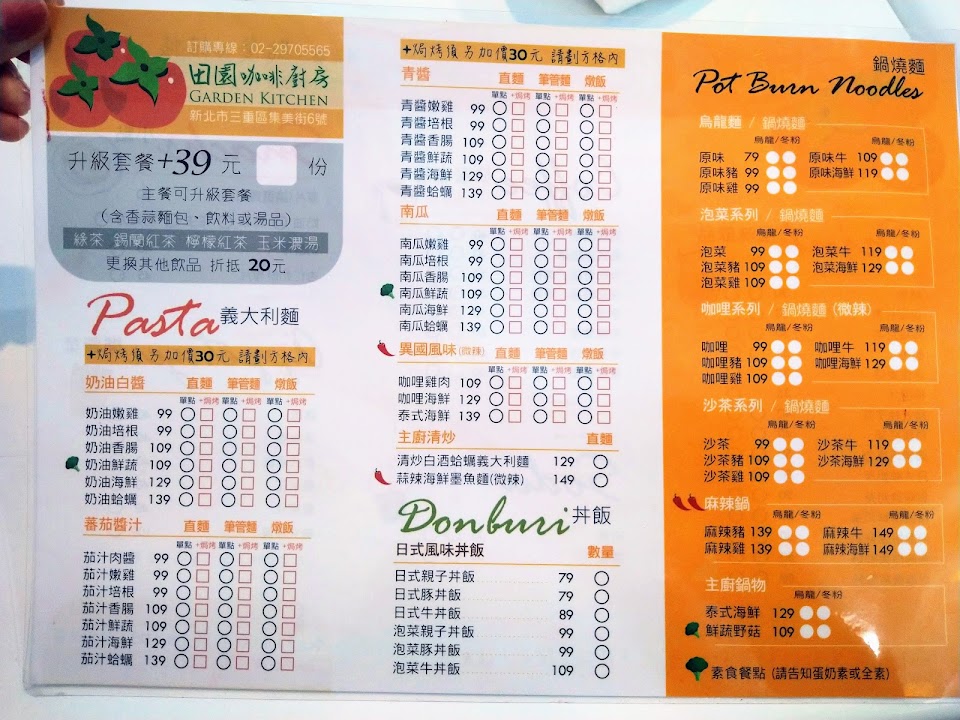 訂購專線：02-29705565
田園咖啡廚房
GARDEN KITCHEN
新北市三重區集美街6號
升級套餐+39元 份
主餐可升級套餐
(含香蒜麵包、飲料或湯品)
綠茶 錫蘭紅茶 檸檬紅茶 玉米濃湯
更換其他飲品 折抵 20元
Pasta 義大利麵
+焗烤須另加價30元 請劃方格內
奶油白醬 直麵 筆管麵 燉飯
單點 +焗烤 單點 +焗烤 單點 +焗烤
奶油嫩雞 99
奶油培根 99
奶油香腸 109
奶油鮮蔬 109
奶油海鮮 129
奶油蛤蠣 139
蕃茄醬汁 直麵 筆管麵 燉飯
單點 +焗烤 單點 +焗烤 單點 +焗烤
茄汁肉醬 99
茄汁嫩雞 99
茄汁培根 99
茄汁香腸 109
茄汁鮮蔬 109
茄汁海鮮 129
茄汁蛤蠣 139
+焗烤須另加價30元 請劃方格內
青醬 直麵 筆管麵 燉飯
單點 +焗烤 單點 +焗烤 單點 +焗烤
青醬嫩雞 99
青醬培根 99
青醬香腸 109
青醬鮮蔬 109
青醬海鮮 129
青醬蛤蠣 139
南瓜 直麵 筆管麵 燉飯
單點 +焗烤 單點 +焗烤 單點 +焗烤
南瓜嫩雞 99
南瓜培根 99
南瓜香腸 109
南瓜鮮蔬 109
南瓜海鮮 129
南瓜蛤蠣 139
異國風味(微辣) 直麵 筆管麵 燉飯
單點 +焗烤 單點 +焗烤 單點 +焗烤
咖哩雞肉 109
咖哩海鮮 129
泰式海鮮 139
主廚清炒 直麵
清炒白酒蛤蠣義大利麵 129
蒜辣海鮮墨魚麵(微辣) 149
Donburi 丼飯
日式風味丼飯 數量
日式親子丼飯 79
日式豚丼飯 79
日式牛丼飯 89
泡菜親子丼飯 99
泡菜豚丼飯 99
泡菜牛丼飯 109
鍋燒麵
Pot Burn Noodles
烏龍麵 / 鍋燒麵
烏龍/冬粉 烏龍/冬粉
原味 79 原味牛 109
原味豬 99 原味海鮮 119
原味雞 99
泡菜系列 / 鍋燒麵
烏龍/冬粉 烏龍/冬粉
泡菜 99 泡菜牛 119
泡菜豬 109 泡菜海鮮 129
泡菜雞 109
咖哩系列 / 鍋燒麵(微辣)
烏龍/冬粉 烏龍/冬粉
咖哩 99 咖哩牛 119
咖哩豬 109 咖哩海鮮 129
咖哩雞 109
沙茶系列 / 鍋燒麵
烏龍/冬粉 烏龍/冬粉
沙茶 99 沙茶牛 119
沙茶豬 109 沙茶海鮮 129
沙茶雞 109
麻辣鍋
烏龍/冬粉 烏龍/冬粉
麻辣豬 139 麻辣牛 149
麻辣雞 139 麻辣海鮮 149
主廚鍋物
烏龍/冬粉
泰式海鮮 129
鮮蔬野菇 109
素食餐點 (請告知蛋奶素或全素)